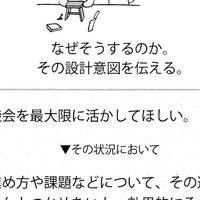 なぜそうするのか。
その設計意図を伝える。
会を最大限に活かしてほしい。
▼その状況において
め方や課題などについて、その